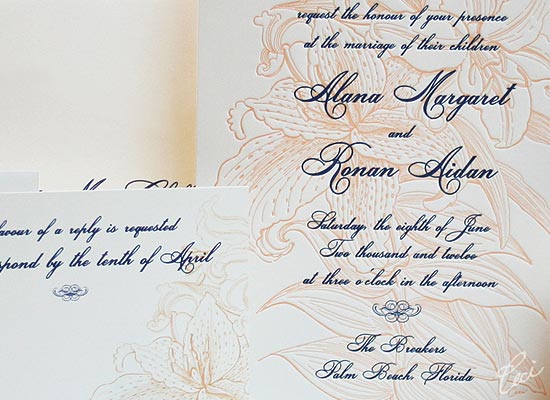 request the honour of your presence
at the marriage of their children
Alana Margaret
and
Ronan Aidan
Saturday, the eighth of June
Two thousand and twelve
at three o'clock in the afternoon
The Breakers
Palm Beach, Florida
of a reply is requested
by the tenth of April
Ceci